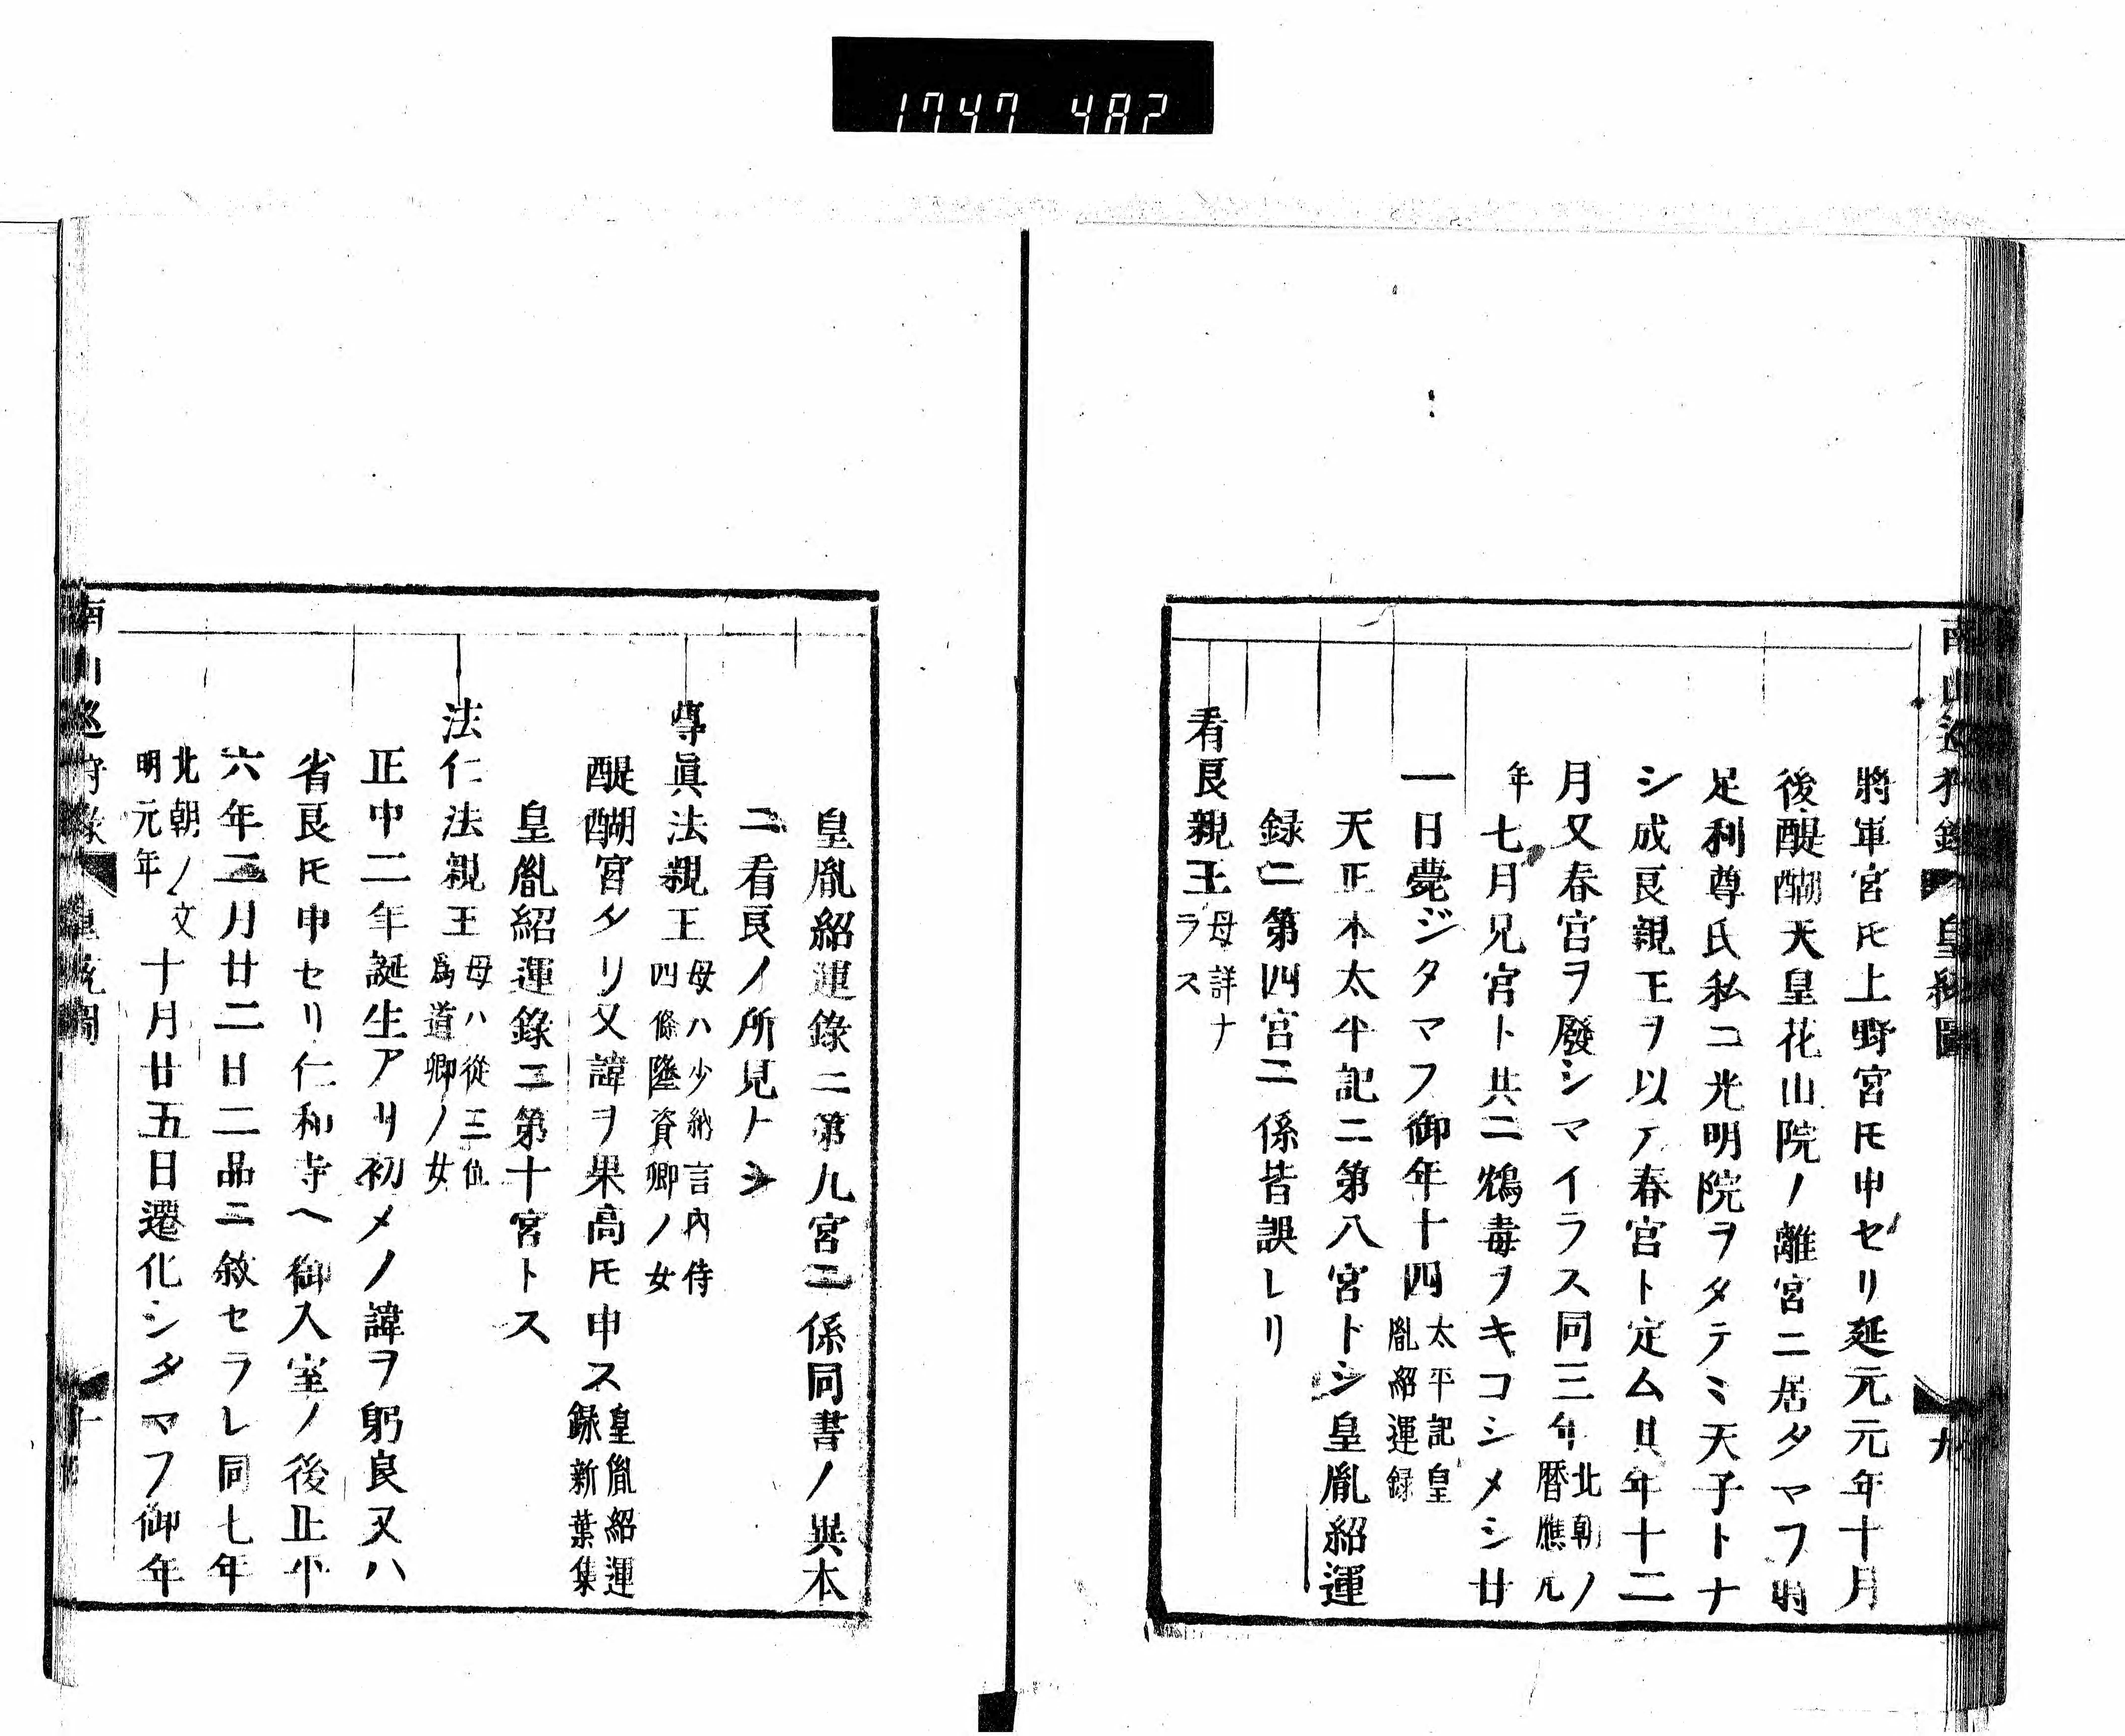 1747 482
南山巡狩録 皇統圖 九
將軍宮𪜈上野宮𪜈申セリ延元元年十月
後醍醐天皇花山院ノ離宮ニ居タマフ時
足利尊氏私ニ光明院ヲタテミ天子トナ
シ成良親王ヲ以テ春宮ト定ム其年十二
月又春宮ヲ廢シマイラス同三年北朝ノ暦應元
年七月兄宮ト共ニ鴆毒ヲキコシメシ廿
一日薨ジタマフ御年十四太平記皇胤紹運録
天正本太平記ニ第八宮トシ皇胤紹運
録ニ第四宮ニ係皆誤レリ
看良親王母詳ナラス
皇胤紹運錄ニ第九宮ニ係同書ノ異本
ニ看良ノ所見トシ
尊眞法親王母ハ少納言内侍四條隆資卿ノ女
醍醐宮タリ又諱ヲ果高𪜈申ス皇胤紹運録新葉集
皇胤紹運錄ニ第十宮トス
法仁法親王母ハ從三位爲道卿ノ女
正中二年誕生アリ初メノ諱ヲ躬良又ハ
省良𪜈申セリ仁和寺ヘ御入室ノ後正平
六年二月廿二日二品ニ敘セラレ同七年
北朝ノ文明元年十月廿五日遷化シタマフ御年
南山巡狩錄 皇統圖 十